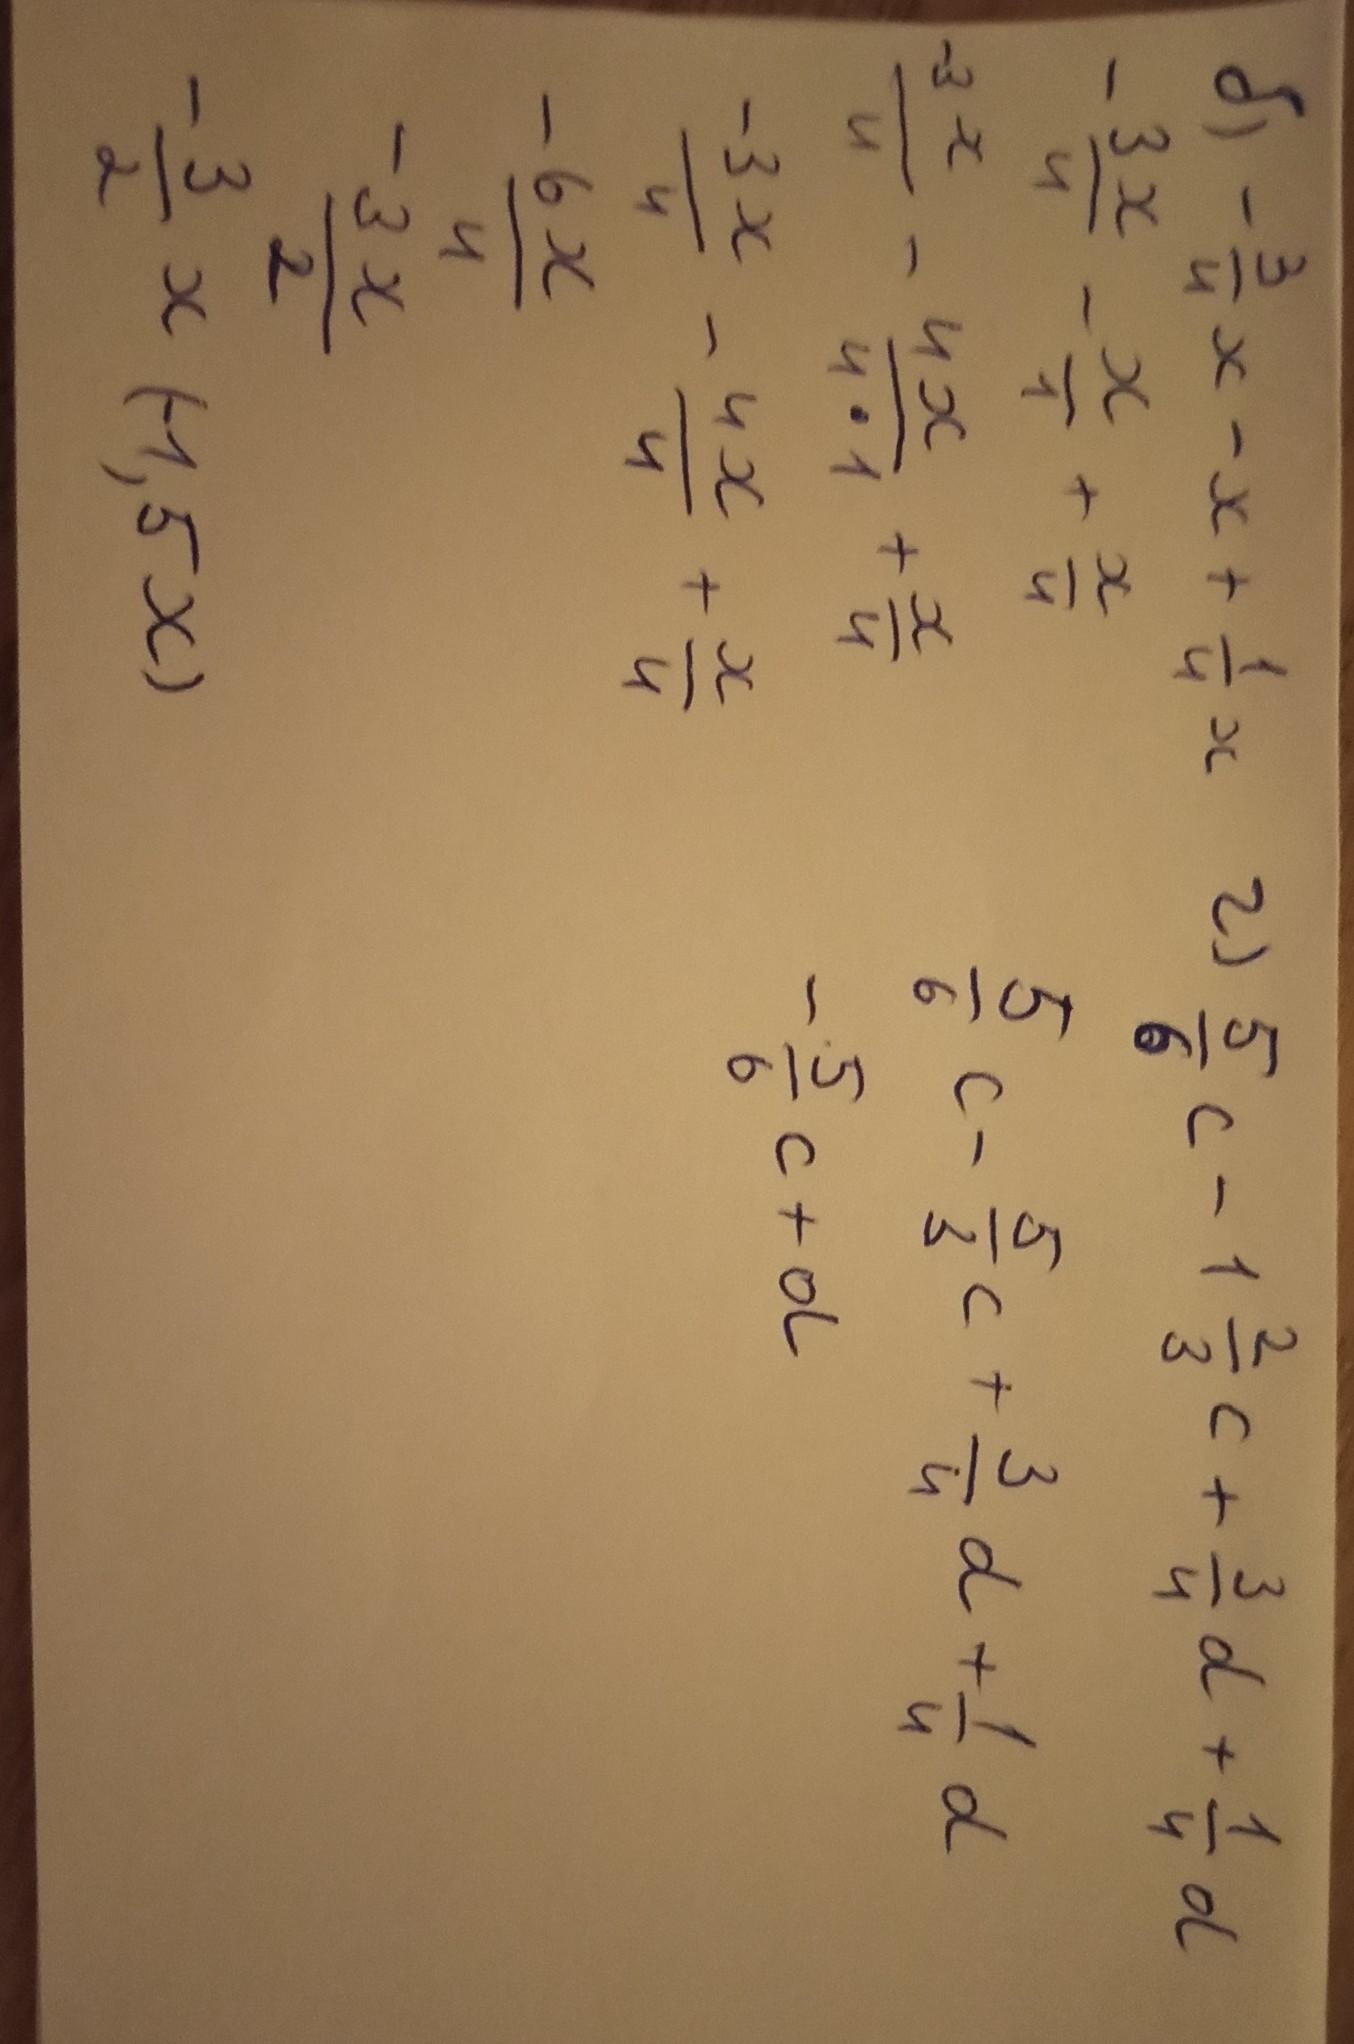 б) -3/4 x - x + 1/4 x
- 3x/4 - x/1 + x/4
-3x/4 - 4x/4•1 + x/4
-3x/4 - 4x/4 + x/4
- 6x/4
- 3x/2
- 3/2 x (-1,5x)
г) 5/6 c - 1 2/3 c + 3/4 d + 1/4 d
5/6 c - 5/3 c + 3/4 d + 1/4 d
- 5/6 c + d